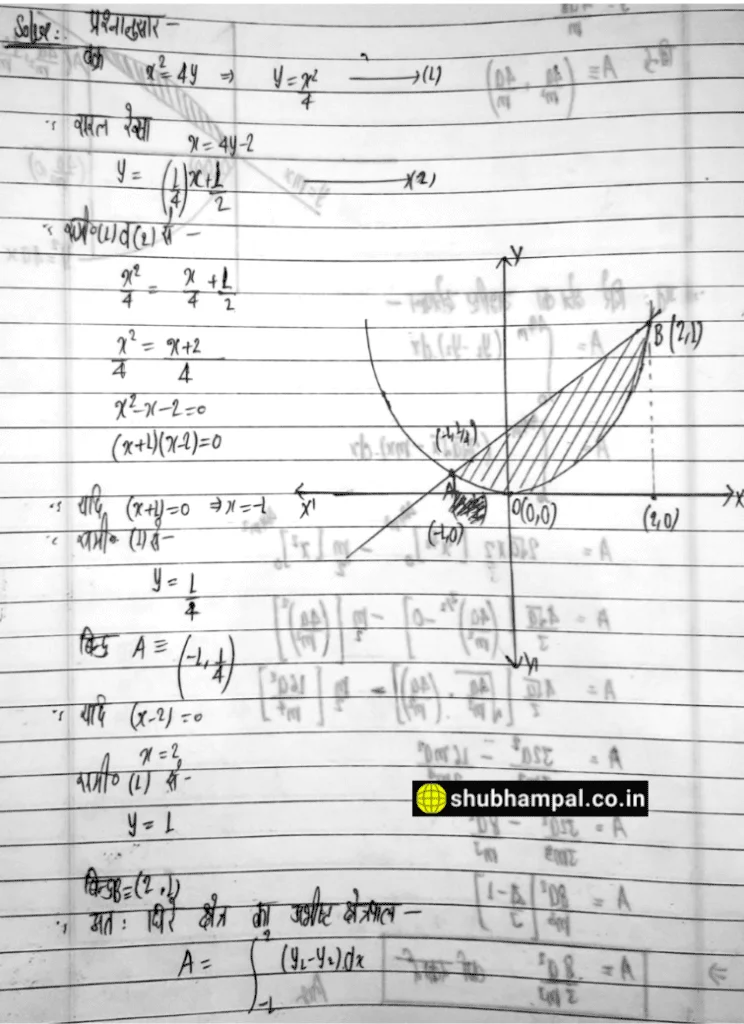 Solve: प्रश्नानुसार —
वक्र x² = 4y ⇒ y = x²/4 ——→(1)
∵ सरल रेखा x = 4y-2
y = (1/4)x + 1/2 ——→(2)
∵ समी० (1) व (2) से —
x²/4 = x/4 + 1/2
x²/4 = x+2/4
x²-x-2=0
(x+1)(x-2)=0
∵ यदि (x+1)=0 ⇒ x=-1
∵ समी० (1) से-
y = 1/4
बिन्दु A ≡ (-1, 1/4)
∵ यदि (x-2)=0
x=2
समी० (1) से-
y = 1
बिन्दु B=(2,1)
∵ अतः घिरे क्षेत्र का अभीष्ट क्षेत्रफल —
A = ∫₋₁² (y₁-y₂).dx
Y
B(2,1)
(-1,1/4)
A
X'
O(0,0)
X
(-1,0)
(2,0)
Y'
shubhampal.co.in